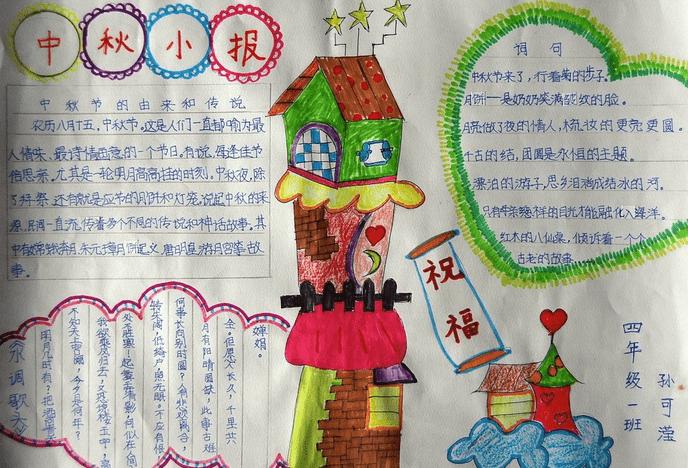 中秋小报
中秋节的由来和传说
农历八月十五,中秋节。这是人们一直都喻为最
人情味、最诗情画意的一个节日。有说,每逢佳节
倍思亲。尤其是一轮明月高高挂的时刻,中秋夜,除
了月祭,还有就是应节的月饼和灯笼,说起中秋的来
源,民间一直流传着多个不同的传说和神话故事。其
中有嫦娥奔月、朱元璋月饼起义、唐明皇游月宫等故
事。
词句
中秋节来了,行着菊的步子。
月饼一是奶奶笑满皱纹的脸。
月亮做了夜的情人,梳妆的更亮更圆。
千古的结,团圆是永恒的主题。
漂泊的游子,思乡泪滴成结冰的河。
只有母亲慈祥的目光才能融化入海洋。
红木的八仙桌,倾诉着一个个
古老的故事
祝福
水调歌头
明月几时有?把酒问青天。
不知天上宫阙,今夕是何年?
我欲乘风归去,又恐琼楼玉宇,高
处不胜寒!起舞弄清影,何似在人间
转朱阁,低绮户,照无眠。不应有恨,
何事长向别时圆,人有悲欢离合,
月有阴晴圆缺,此事古难
全。但愿人长久,千里共
婵娟。
四年级一班
孙可滢